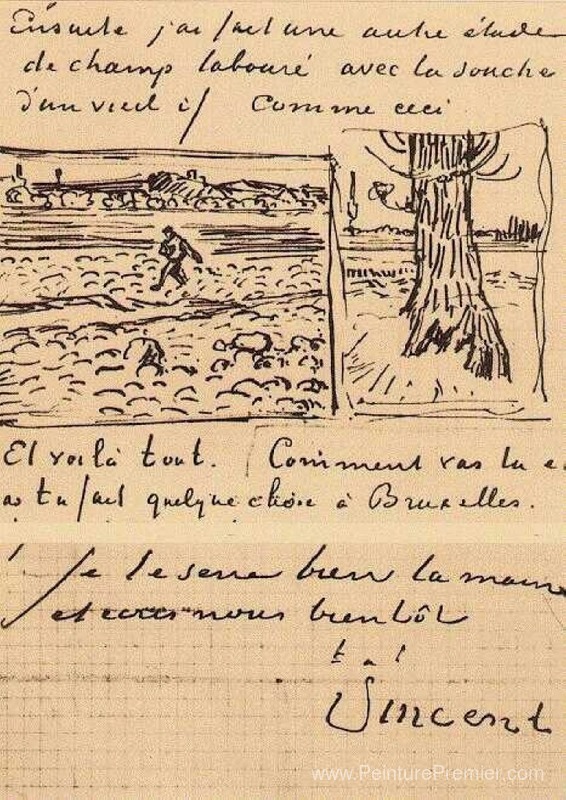 Ensuite j'ai fait une autre étude
de champ labouré avec la souche
d'un vieil if comme ceci
Et voilà tout. Comment vas tu e
as tu fait quelque chose à Bruxelles.
Je te serre bien la main
et bientôt
t. à. t.
Vincent
www.PeinturePremier.com